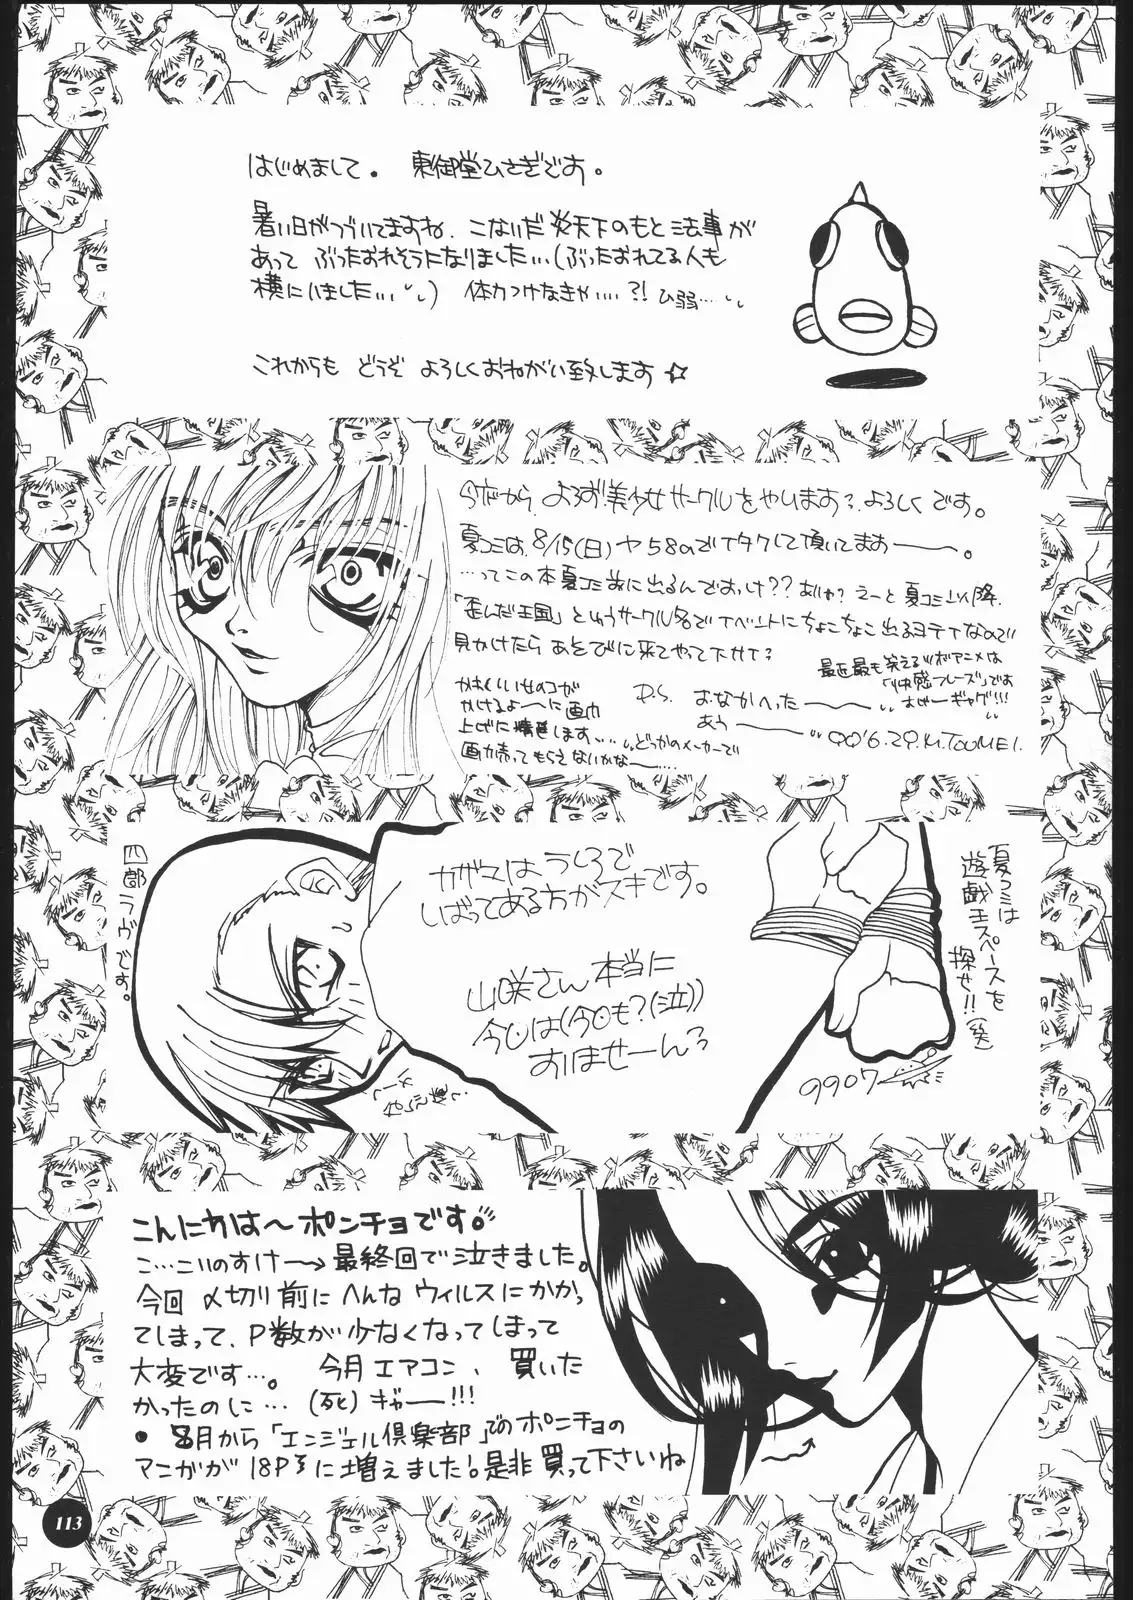 はじめまして。 東御堂ひさぎです。
暑い日がつづいてますね、こないだ炎天下のもと法事が
あって ぶったおれそうになりました…(ぶったおれてる人も
横にいました…) 体力つけなきゃ…?! ひ弱…
これからも どうぞ よろしくおねがい致します☆
よろず美少女サークルをやります?よろしくです。
夏コミは、8/15(日)ヤ58aでイタクして頂いてまおーー。
…ってこの本夏コミ前に出るんですっけ??ありゃ?えーと夏コミ以降、
「歪んだ王国」というサークル名でイベントにちょこちょこ出るヨテイなので
見かけたら あそびに来てやって下サイ?
最近最も笑えるバボアニメは
「快感フレーズ」です
かわいいせのコが
かけるよーーに画力
上げに精進します…どっかのメーカーで
画力売ってもらえないかなーー…
P.S. おなかへったーーー
あうーーー
'99'6.29.M.TOUMEI.
四郎ラヴです。
カザマはうしろで
しばってある方がスキです。
山咲さん本当に
今回は(今回も?(泣))
すいませーん?
夏コミは
遊戯王スペースを
探せ!!(笑)
9907
こんにちは〜ポンチョです。
こ…こいのすけ〜→最終回で泣きました。
今回〆切り前にへんなウィルスにかかっ
てしまって、P数が少なくなってしまって
大変です…。 今月エアコン、買いた
かったのに…(死)ぎゃーー!!!
● 8月から「エンジェル倶楽部」でのポンチョの
マンガが18Pに増えました!是非買って下さいね
113